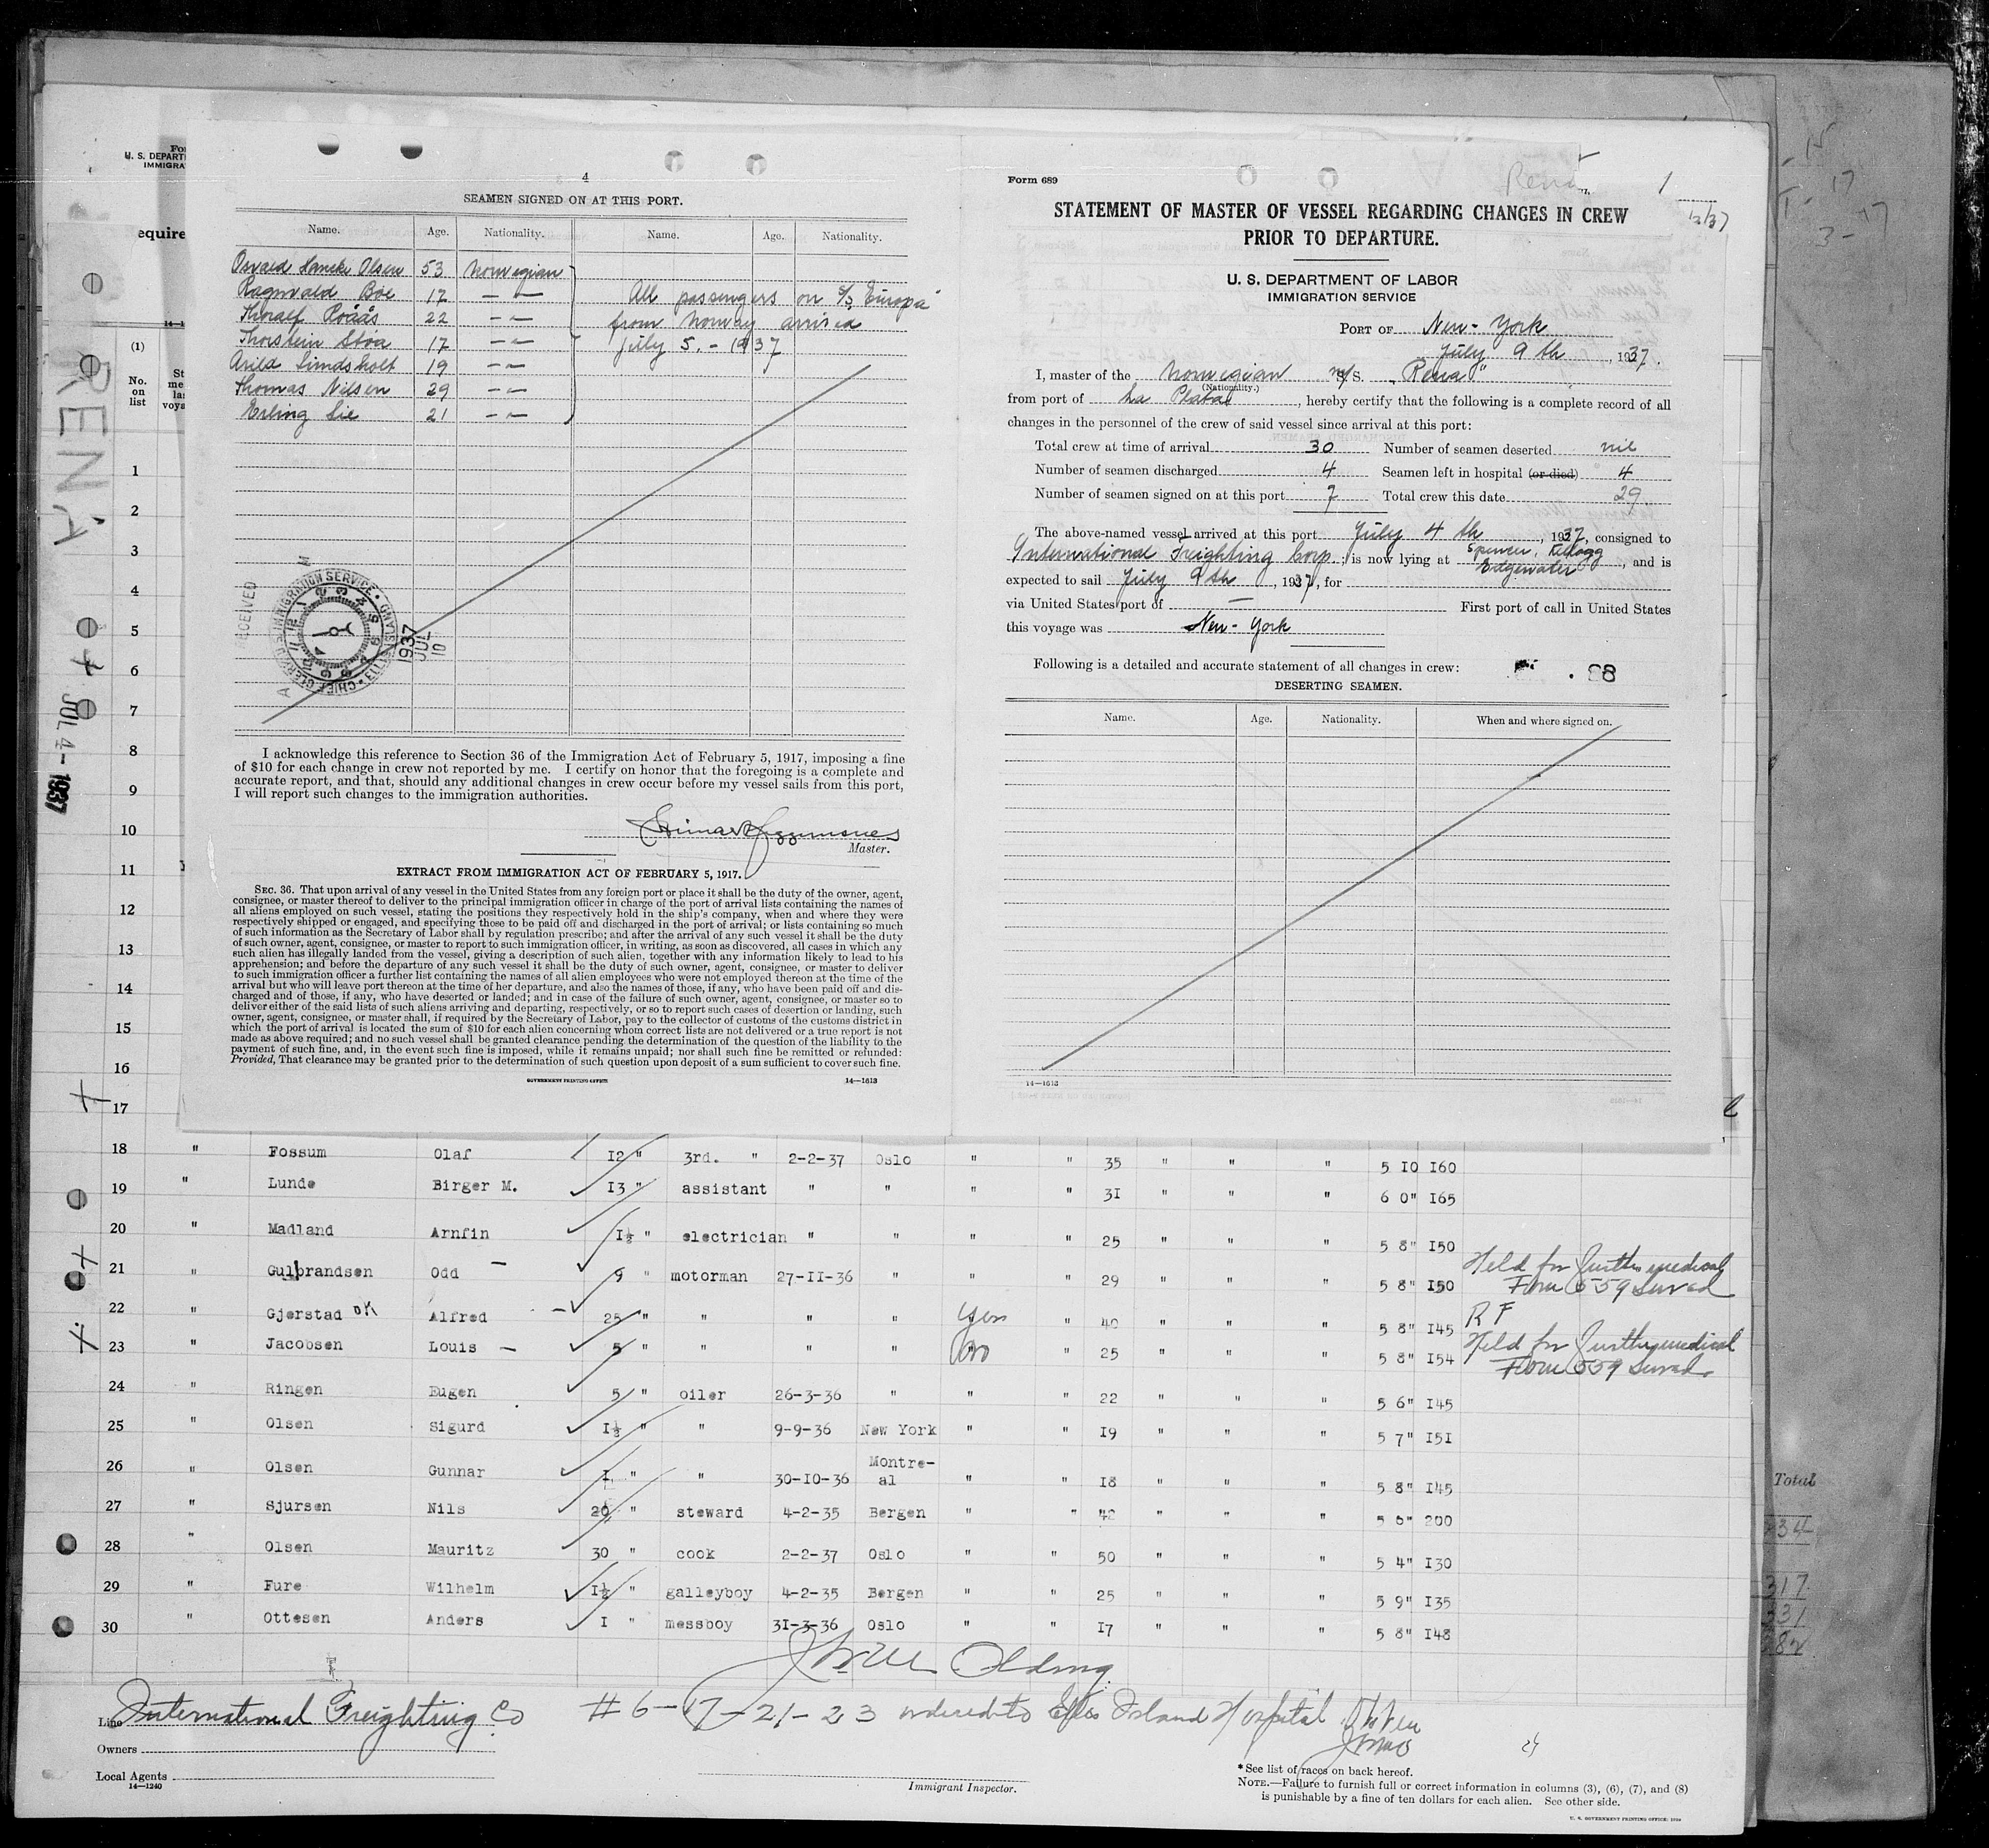 4
SEAMEN SIGNED ON AT THIS PORT.
Name. Age. Nationality. Name. Age. Nationality.
Osvald Olsen 53 Norwegian
Ragnvald Boe 17 — " —
Thoralf Röäås 22 — " —
Thorstein Stöa 17 — " —
Arild Lindsholt 19 — " —
Thomas Nilsen 29 — " —
Erling Lie 21 — " —
All passengers on S/S "Europa"
from Norway arrived
July 5. - 1937
RECEIVED
CHIEF CLERK U.S. IMMIGRATION SERVICE • ELLIS ISLAND
1937 JUL 10
I acknowledge this reference to Section 36 of the Immigration Act of February 5, 1917, imposing a fine
of $10 for each change in crew not reported by me. I certify on honor that the foregoing is a complete and
accurate report, and that, should any additional changes in crew occur before my vessel sails from this port,
I will report such changes to the immigration authorities.
Master.
EXTRACT FROM IMMIGRATION ACT OF FEBRUARY 5, 1917.
SEC. 36. That upon arrival of any vessel in the United States from any foreign port or place it shall be the duty of the owner, agent,
consignee, or master thereof to deliver to the principal immigration officer in charge of the port of arrival lists containing the names of
all aliens employed on such vessel, stating the positions they respectively hold in the ship's company, when and where they were
respectively shipped or engaged, and specifying those to be paid off and discharged in the port of arrival; or lists containing so much
of such information as the Secretary of Labor shall by regulation prescribe; and after the arrival of any such vessel it shall be the duty
of such owner, agent, consignee, or master to report to such immigration officer, in writing, as soon as discovered, all cases in which any
such alien has illegally landed from the vessel, giving a description of such alien, together with any information likely to lead to his
apprehension; and before the departure of any such vessel it shall be the duty of such owner, agent, consignee, or master to deliver
to such immigration officer a further list containing the names of all alien employees who were not employed thereon at the time of the
arrival but who will leave port thereon at the time of her departure, and also the names of those, if any, who have been paid off and dis-
charged and of those, if any, who have deserted or landed; and in case of the failure of such owner, agent, consignee, or master so to
deliver either of the said lists of such aliens arriving and departing, respectively, or so to report such cases of desertion or landing, such
owner, agent, consignee, or master shall, if required by the Secretary of Labor, pay to the collector of customs of the customs district in
which the port of arrival is located the sum of $10 for each alien concerning whom correct lists are not delivered or a true report is not
made as above required; and no such vessel shall be granted clearance pending the determination of the question of the liability to the
payment of such fine, and, in the event such fine is imposed, while it remains unpaid; nor shall such fine be remitted or refunded:
Provided, That clearance may be granted prior to the determination of such question upon deposit of a sum sufficient to cover such fine.
GOVERNMENT PRINTING OFFICE 14—1613
Form 689
Rena
1
STATEMENT OF MASTER OF VESSEL REGARDING CHANGES IN CREW
PRIOR TO DEPARTURE.
U. S. DEPARTMENT OF LABOR
IMMIGRATION SERVICE
PORT OF New-York
July 9 th, 1937.
I, master of the Norwegian M/S. "Rena"
(Nationality.)
from port of La Plata, hereby certify that the following is a complete record of all
changes in the personnel of the crew of said vessel since arrival at this port:
Total crew at time of arrival 30 Number of seamen deserted nil
Number of seamen discharged 4 Seamen left in hospital (or died) 4
Number of seamen signed on at this port 7 Total crew this date 29
The above-named vessel arrived at this port July 4 th, 1937, consigned to
International Freighting Corp.; is now lying at Spencer, Kellogg Edgewater, and is
expected to sail July 9th, 1937, for
via United States port of — First port of call in United States
this voyage was New-York
Following is a detailed and accurate statement of all changes in crew: 88
DESERTING SEAMEN.
Name. Age. Nationality. When and where signed on.
14—1613
U. S. DEPART
IMMIGRA
equire
RENA
JUL 4 - 1937
(1)
No. on list
1
2
3
4
5
6
7
8
9
10
11
12
13
14
15
16
17
18 " Fossum Olaf 12 " 3rd. " 2-2-37 Oslo " " 35 " " " 5 10 160
19 " Lunde Birger M. 13 " assistant " " " " 31 " " " 6 0" 165
20 " Madland Arnfin 1½ " electrician " " " " 25 " " " 5 8" 150
21 " Gulbrandsen Odd — 9 " motorman 27-11-36 " " " 29 " " " 5 8" 150 Held for further medical Form 559 served
22 " Gjerstad OK Alfred 25 " " " " yes " 40 " " " 5 8" 145 R F
23 " Jacobsen Louis — 5 " " " " no " 25 " " " 5 8" 154 Held for further medical Form 559 served
24 " Ringen Eugen 5 " oiler 26-3-36 " " " 22 " " " 5 6" 145
25 " Olsen Sigurd 1½ " " 9-9-36 New York " " 19 " " " 5 7" 151
26 " Olsen Gunnar 1 " " 30-10-36 Montre-al " " 18 " " " 5 8" 145
27 " Sjursen Nils 20 " steward 4-2-35 Bergen " " 42 " " " 5 8" 200
28 " Olsen Mauritz 30 " cook 2-2-37 Oslo " " 50 " " " 5 4" 130
29 " Fure Wilhelm 1½ " galleyboy 4-2-35 Bergen " " 25 " " " 5 9" 135
30 " Ottesen Anders 1 " messboy 31-3-36 Oslo " " 17 " " " 5 8" 148
Line International Freighting Co
# 6-17-21-23 ordered to Ellis Island Hospital
Owners
Local Agents
14—1240
Immigrant Inspector.
* See list of races on back hereof.
NOTE.—Failure to furnish full or correct information in columns (3), (6), (7), and (8)
is punishable by a fine of ten dollars for each alien. See other side.
U. S. GOVERNMENT PRINTING OFFICE
Total